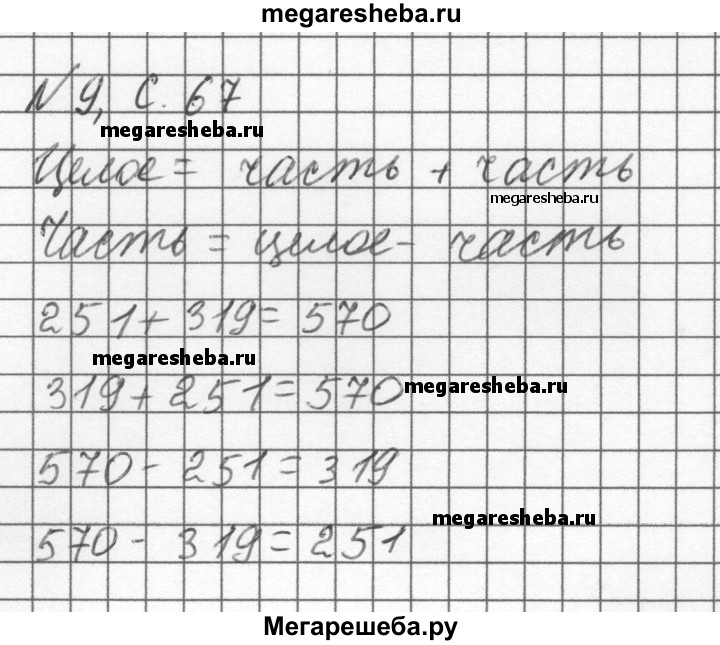 megaresheba.ru
N 9, с. 67
megaresheba.ru
Целое = часть + часть
megaresheba.ru
Часть = целое - часть
251 + 319 = 570
megaresheba.ru
319 + 251 = 570 megaresheba.ru
570 - 251 = 319
megaresheba.ru
570 - 319 = 251
Мегарешеба.ру